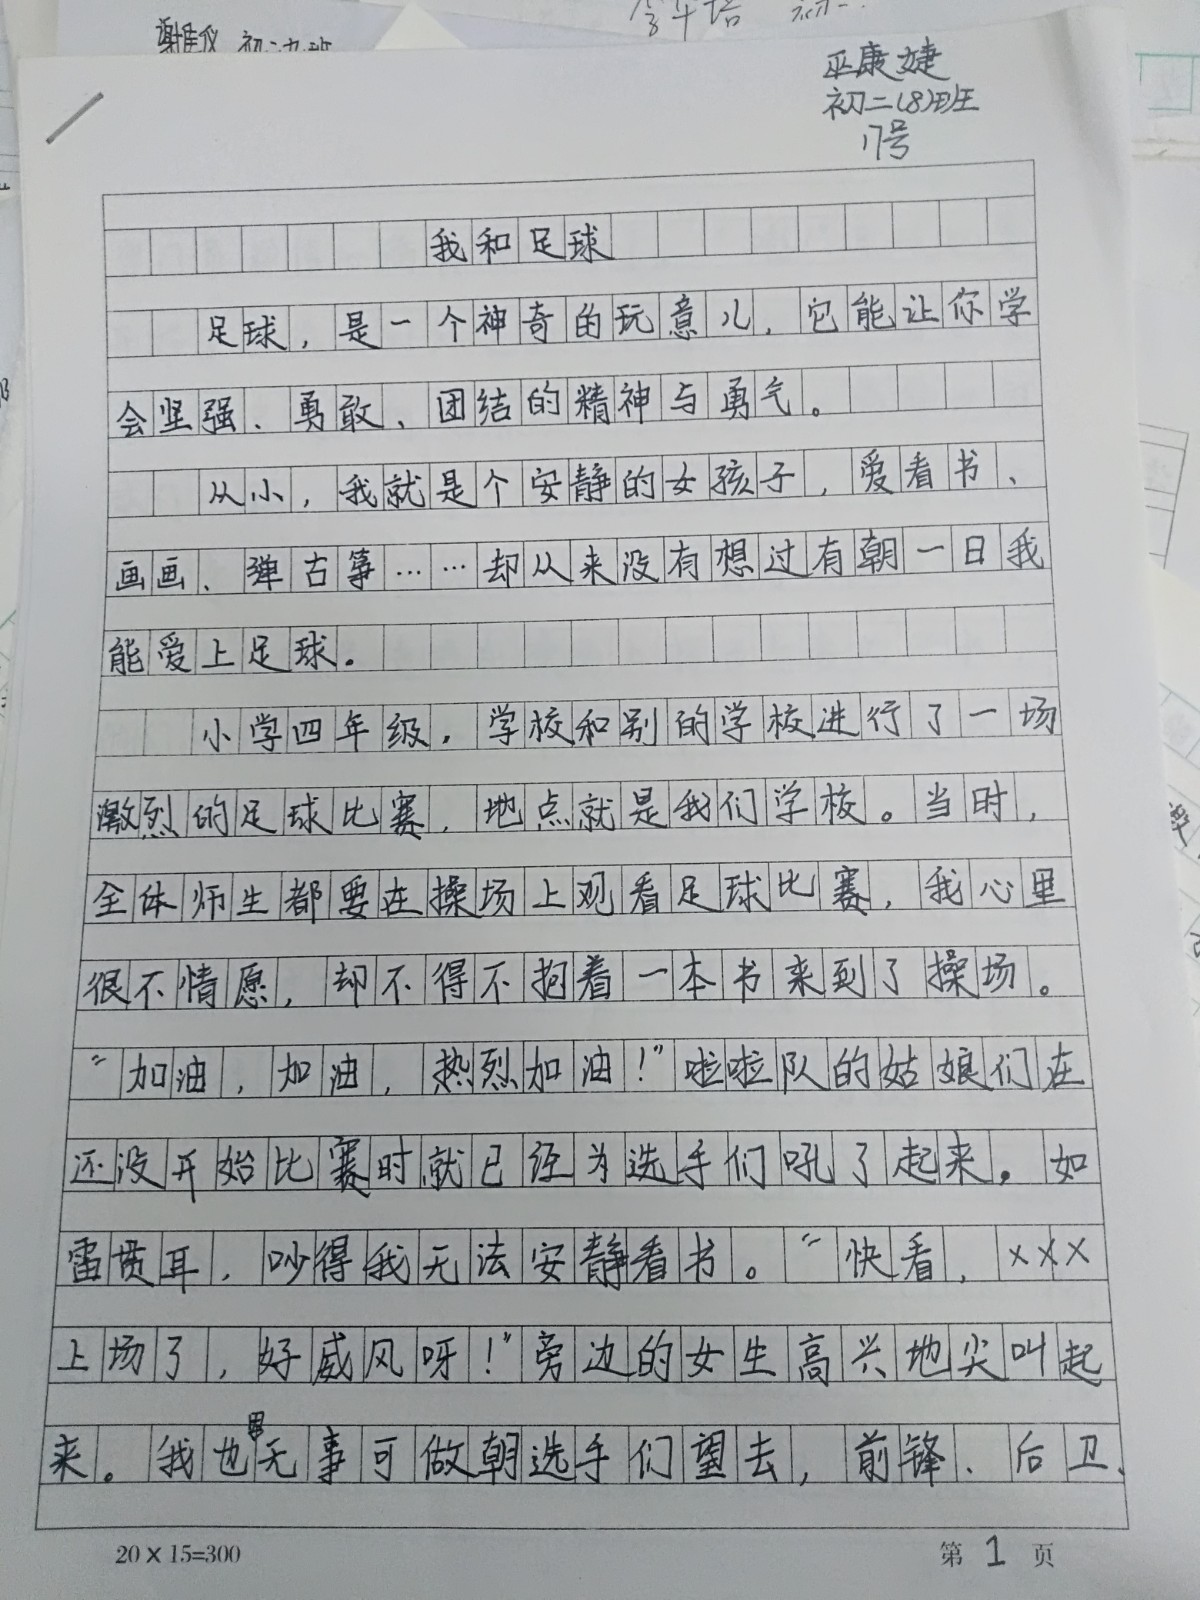 谢佳仪
巫康婕
初二(8)班
17号
我和足球
足球，是一个神奇的玩意儿，它能让你学
会坚强、勇敢、团结的精神与勇气。
从小，我就是个安静的女孩子，爱看书、
画画、弹古筝……却从来没有想过有朝一日我
能爱上足球。
小学四年级，学校和别的学校进行了一场
激烈的足球比赛，地点就是我们学校。当时，
全体师生都要在操场上观看足球比赛，我心里
很不情愿，却不得不抱着一本书来到了操场。
“加油，加油，热烈加油！”啦啦队的姑娘们在
还没开始比赛时就已经为选手们吼了起来。如
雷贯耳，吵得我无法安静看书。“快看，×××
上场了，好威风呀！”旁边的女生高兴地尖叫起
来。我也因无事可做朝选手们望去，前锋、后卫、
20×15=300
第 1 页